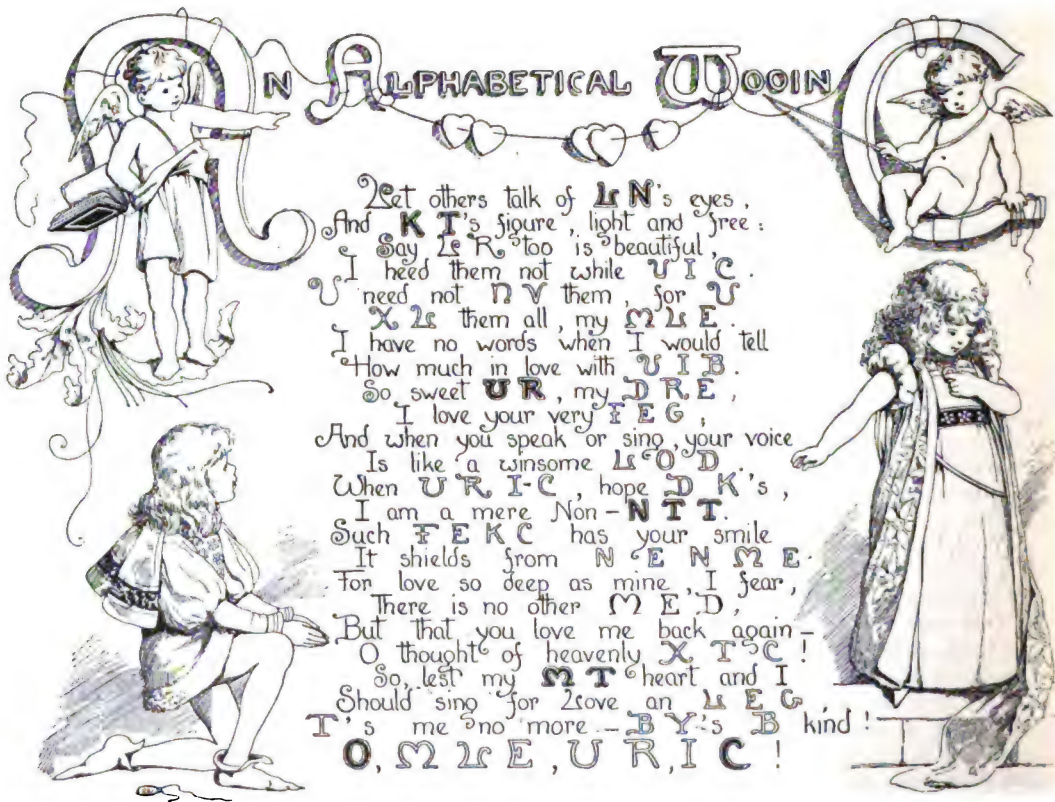 AN ALPHABETICAL WOOING
Let others talk of L N's eyes,
And K T's figure, light and free:
Say L R too is beautiful,
I heed them not while U I C.
U need not N V them, for U
X L them all, my M L E.
I have no words when I would tell
How much in love with U I B.
So sweet U R, my D R E,
I love your very F E G,
And when you speak or sing, your voice
Is like a winsome L O D.
When U R I-C, hope D K's,
I am a mere Non-N T T.
Such F E K C has your smile
It shields from N E N M E.
For love so deep as mine, I fear,
There is no other M E D,
But that you love me back again—
O thought of heavenly X T C!
So, lest my M T heart and I
Should sing for Love an L E G,
T's me no more—B Y's B kind!
O, M L E, U R, I C!